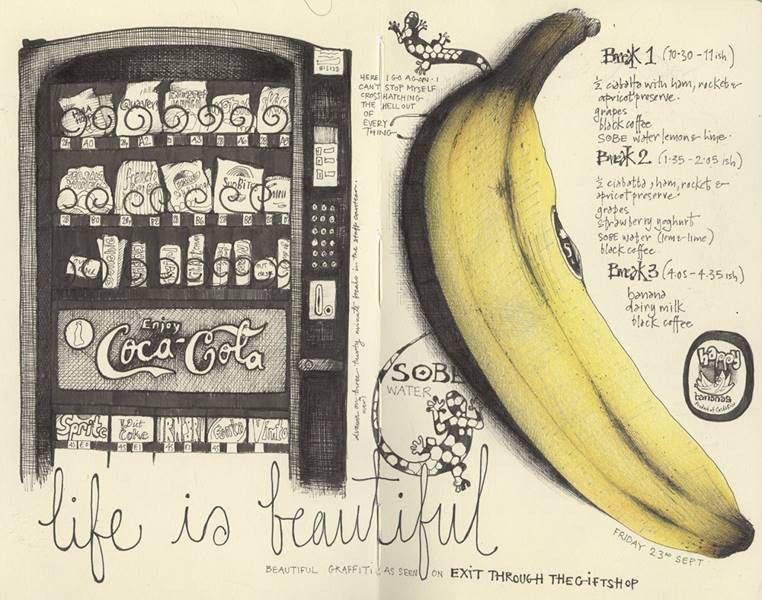 Quavers
A0
A2
French
SunBites
B0
B6
B8
Enjoy
Coca-Cola
Sprite
Diet
Coke
Fanta
Vimto
drawn on three thirty minute breaks in the staff canteen.
HERE I GO AGAIN. I
CAN'T STOP MYSELF
CROSSHATCHING
THE HELL OUT
OF
EVERY
THING
SOBE
WATER
Break 1 (10.30 - 11ish)
½ ciabatta with ham, rocket &
apricot preserve.
grapes
black coffee
SOBE water lemon & lime.
Break 2 (1.35 - 2.05ish)
½ ciabatta, ham, rocket &
apricot preserve.
grapes
strawberry yoghurt
SOBE water (lemon-lime)
black coffee
Break 3 (4.05 - 4.35ish)
banana
dairy milk
black coffee
happy
bananas
Product of Costa Rica
life is beautiful
FRIDAY 23RD SEPT
BEAUTIFUL GRAFFITI AS SEEN ON EXIT THROUGH THE GIFTSHOP